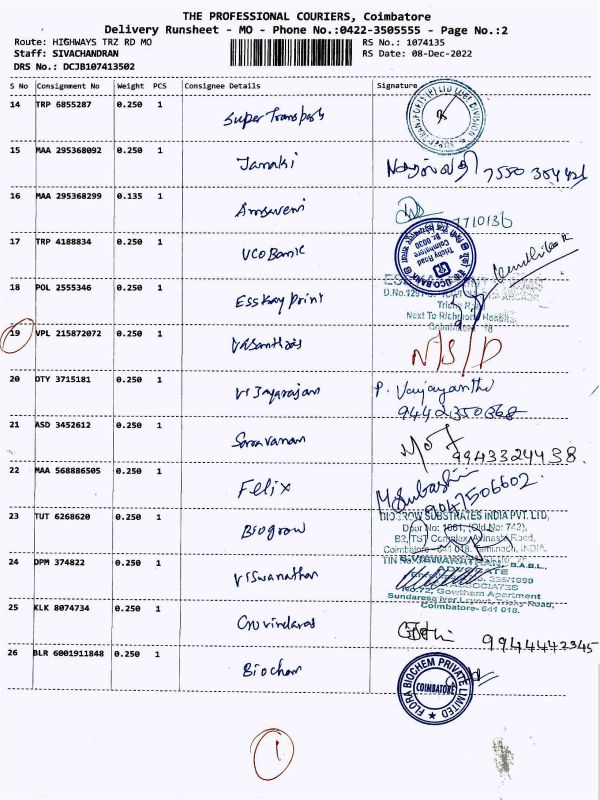 THE PROFESSIONAL COURIERS, Coimbatore
Delivery Runsheet - MO - Phone No.:0422-3505555 - Page No.:2
Route: HIGHWAYS TRZ RD MO
RS No.: 1074135
Staff: SIVACHANDRAN
RS Date: 08-Dec-2022
DRS No.: DCJB107413502
S No Consignment No Weight PCS Consignee Details Signature
14 TRP 6855287 0.250 1 Super Transports
15 MAA 295368092 0.250 1 Janaki
16 MAA 295368299 0.135 1
7710136
17 TRP 4188834 0.250 1 UCO Bank
UCO BANK
Trichy Road
Coimbatore
Br. 0030
18 POL 2555346 0.250 1 Esskay print
Next To Richmond Hospital
Coimbatore - 18
19 VPL 215872072 0.250 1
N/S/D
20 OTY 3715181 0.250 1 Vijayarajan P. Vaijayanthi
9442350868
21 ASD 3452612 0.250 1 Saravanan
9943324438.
22 MAA 568886505 0.250 1 Felix M. Subashini
9047506602.
23 TUT 6268620 0.250 1 Biogrow
BIOGROW SUBSTRATES INDIA PVT. LTD,
Door No: 1061, (Old No: 742),
B2, TST Complex, Avinashi Road,
Coimbatore - 641 018. Tamilnadu, INDIA.
24 DPM 374822 0.250 1 Viswanathan
R. VISWANATHAN, B.A.B.L.,
ADVOCATE
ASSOCIATES
No.72, Gowtham Apartment
Trichy Road,
Coimbatore- 641 018.
25 KLK 8074734 0.250 1 Govindaras
9944442345
26 BLR 6001911848 0.250 1 Biochem
FLORA BIOCHEM PRIVATE LIMITED
COIMBATORE
1